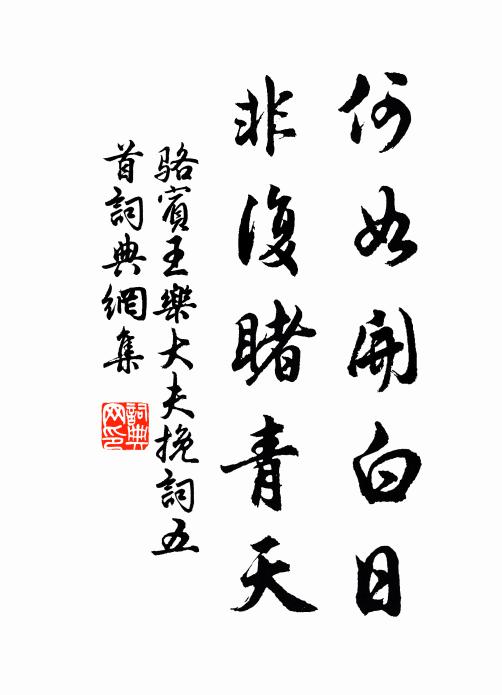 何如開白日
非復睹青天
駱賓王樂大夫挽詞五
首詞典網集
詞典
网印